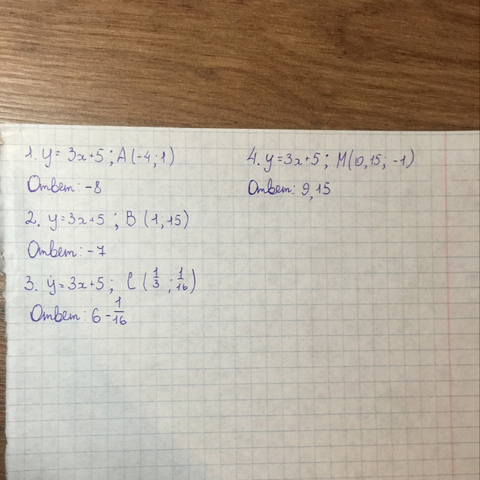 1. y = 3x+5 ; A (-4 ; 1)
Ответ: -8
2. y = 3x+5 ; B (1, 15)
Ответ: -7
3. y = 3x+5 ; C (1/3 ; 1/16)
Ответ: 6 - 1/16
4. y = 3x+5 ; M (0,15 ; -1)
Ответ: 9,15